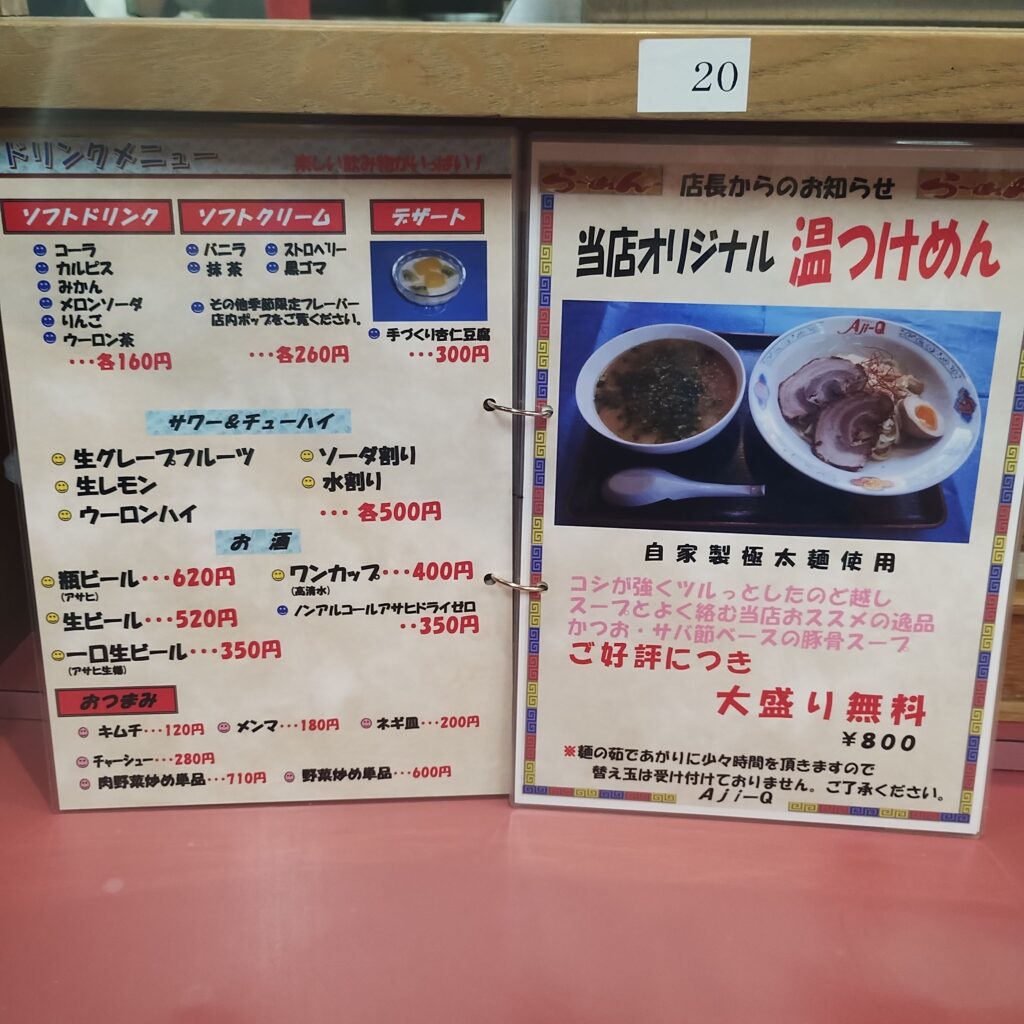 20
ドリンクメニュー
楽しい飲み物がいっぱい!
ソフトドリンク
コーラ
カルピス
みかん
メロンソーダ
りんご
ウーロン茶
・・・各160円
ソフトクリーム
バニラ ストロベリー
抹茶 黒ゴマ
その他季節限定フレーバー
店内ポップをご覧ください。
・・・各260円
デザート
手づくり杏仁豆腐
・・・300円
サワー&チューハイ
生グレープフルーツ ソーダ割り
生レモン 水割り
ウーロンハイ ・・・各500円
お酒
瓶ビール・・・620円
(アサヒ)
生ビール・・・520円
一口生ビール・・・350円
ワンカップ・・・400円
(高清水)
ノンアルコールアサヒドライゼロ
・・350円
おつまみ
キムチ・・・120円 メンマ・・・180円 ネギ皿・・・200円
チャーシュー・・・280円
肉野菜炒め単品・・・710円 野菜炒め単品・・・600円
らーめん 店長からのお知らせ らーめん
当店オリジナル 温つけめん
Aji-Q
自家製極太麺使用
コシが強くツルっとしたのど越し
スープとよく絡む当店おススメの逸品
かつお・サバ節ベースの豚骨スープ
ご好評につき
大盛り無料
¥800
※麺の茹であがりに少々時間を頂きますので
替え玉は受け付けておりません。ご了承ください。
Aji-Q